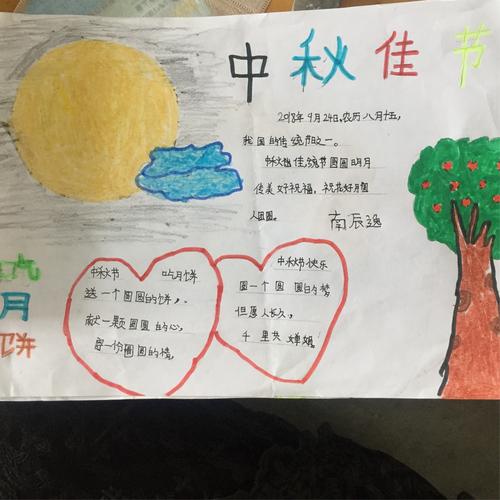 中秋佳节
2018年9月24日,农历八月十五,
我国的传统节日之一。
中秋佳节圆圆明月
使美好祝福,祝花好月圆
人团圆。
南辰逸
吃
月
饼
中秋节 吃月饼
送一个圆圆的饼,
献一颗圆圆的心,
圆圆的情。
中秋节快乐
圆一个圆 圆的梦
但愿人长久,
千里共婵娟。